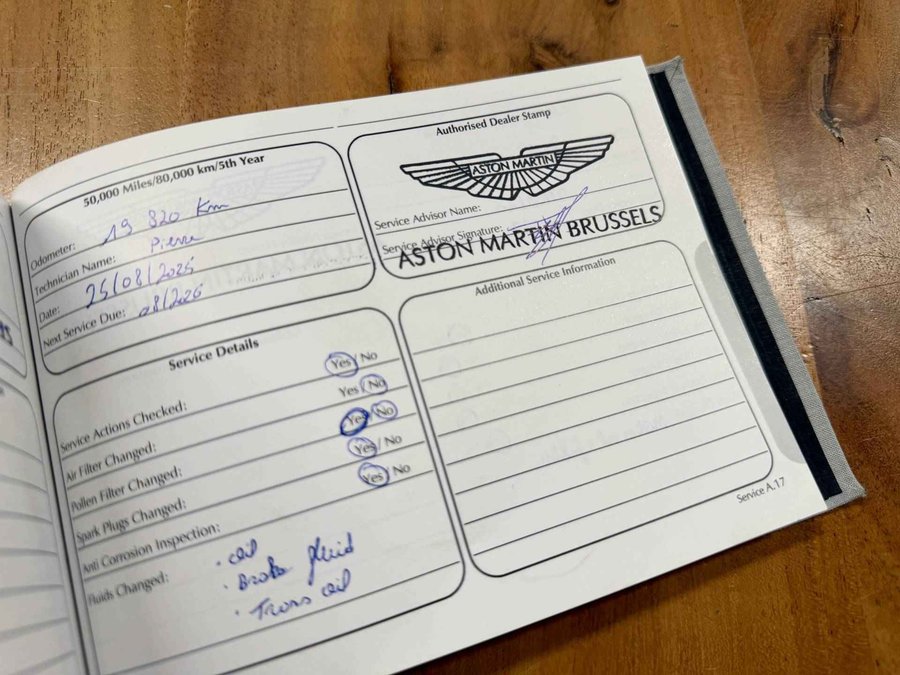 50,000 Miles/80,000 km/5th Year
Odometer: 19 820 Km
Technician Name: Pierre
Date: 25/08/2025
Next Service Due: 08/2026
Authorised Dealer Stamp
ASTON MARTIN
Service Advisor Name:
Service Advisor Signature:
ASTON MARTIN BRUSSELS
Service Details
Service Actions Checked: Yes/No
Air Filter Changed: Yes/No
Pollen Filter Changed: Yes/No
Spark Plugs Changed: Yes/No
Anti Corrosion Inspection: Yes/No
Fluids Changed: · oil
· Brake fluid
· Trans oil
Additional Service Information
Service A.17